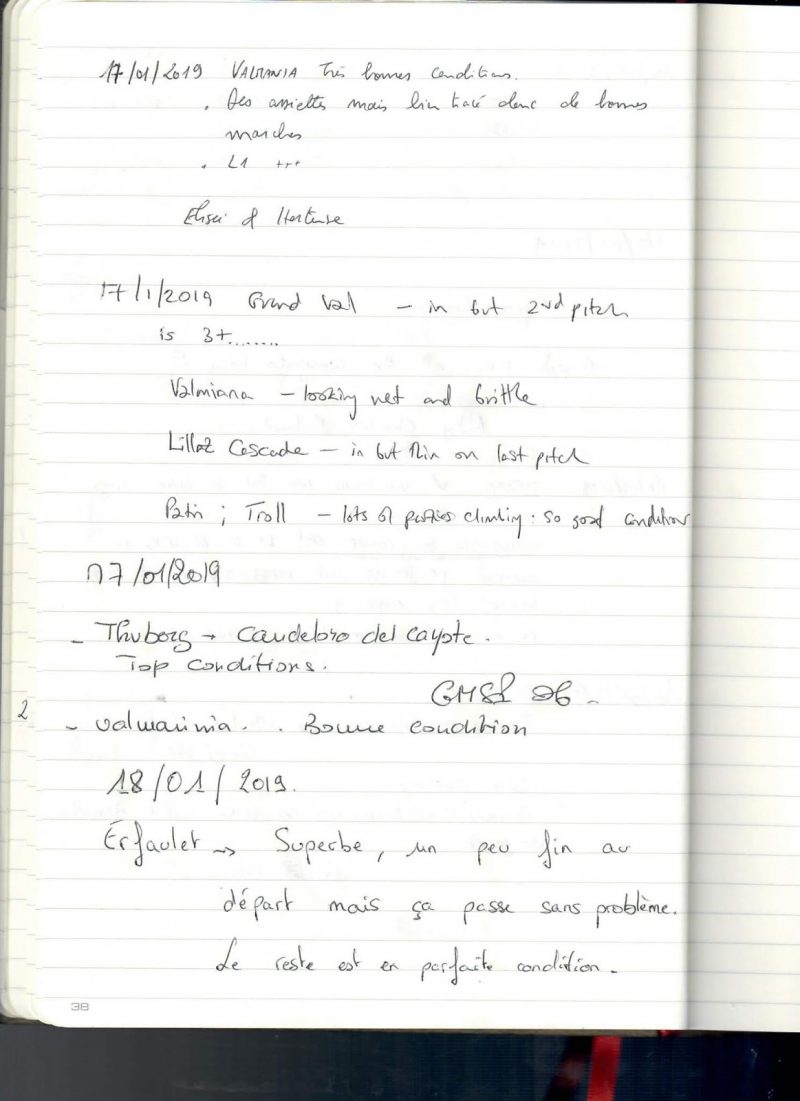 17/01/2019 VALMIANA Très bonnes conditions.
. Des assiettes mais bien tracé donc de bonnes
marches
. L1 +++
& Hortense
17/1/2019 Grand Val – in but 2nd pitch
is 3+........
Valmiana – looking wet and brittle
Lillaz Cascade – in but thin on last pitch
Patri ; Troll – lots of parties climbing : so good conditions
17/01/2019
- Thuborg → Candelabro del Cayote.
Top conditions.
GMSP 06 -
2
- Valmainia. . Bonne condition
18/01/2019.
Erfaulet → Superbe, un peu fin au
départ mais ça passe sans problème.
Le reste est en parfaite condition.
38